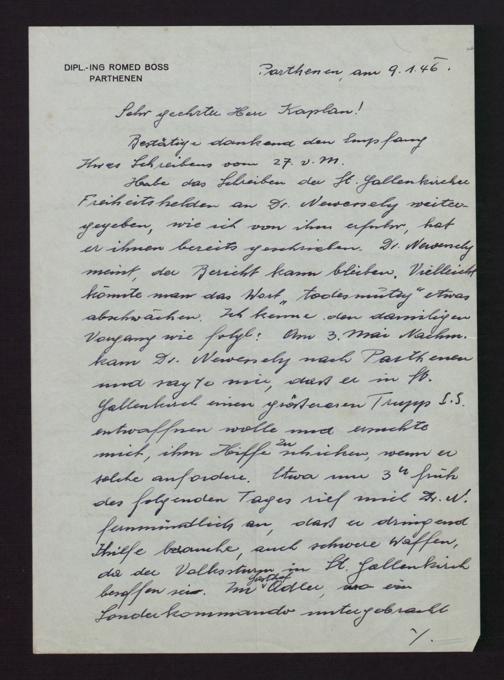 DIPL.-ING ROMED BOSS
PARTHENEN
Parthenen, am 9.1.46.
Sehr geehrter Herr Kaplan!
Bestätige dankend den Empfang
Ihres Schreibens vom 27. v. M.
Habe das Schreiben der St. Gallenkircher
Freiheitshelden an Dr. Newesely weiter-
gegeben, wie ich von ihm erfuhr, hat
er ihnen bereits geschrieben. Dr. Newesely
meint, der Bericht kann bleiben. Vielleicht
könnte man das Wort „todesmutig" etwas
abschwächen. Ich kenne den damaligen
Vorgang wie folgt: Am 3. Mai Nachm.
kam Dr. Newesely nach Parthenen
und sagte mir, dass er in St.
Gallenkirch einen grösseren Trupp S.S.
entwaffnen wolle und ersuchte
mich, ihm Hilfe zu schicken, wenn er
solche anfordere. Etwa um 3 h früh
des folgenden Tages rief mich Dr. N.
fernmündlich an, dass er dringend
Hilfe brauche, auch schwere Waffen,
da der Volkssturm in St. Gallenkirch
besoffen sei. Im Gasthof Adler, wo ein
Sonderkommando untergebracht
./.